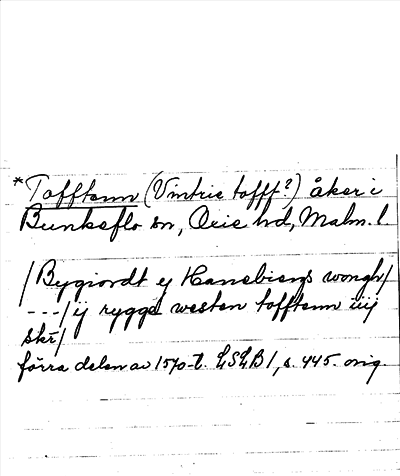 *Tofftenn (Vintrie tofft?) åker i
Bunkeflo sn, Oxie hd, Malm. l
/Bygiordt ej Hanebiergs wongh/
---/ij rygge westen tofftenn iiij
skr/
förra delen av 1570-t. LSLB 1, s. 445. orig.